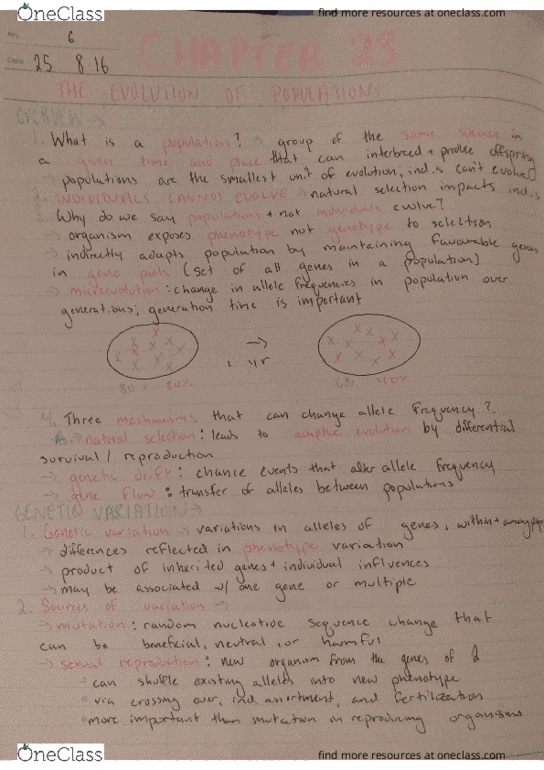 OneClass
find more resources at oneclass.com
No. 6
Date 25 8 16
CHAPTER 23
THE EVOLUTION OF POPULATIONS
OVERVIEW →
1. What is a population? → group of the same species in
a given time and place that can interbreed + produce offspring
→ populations are the smallest unit of evolution; ind.s can't evolve
INDIVIDUALS CANNOT EVOLVE → natural selection impacts ind.s
Why do we say populations + not individuals evolve?
→ organism exposes phenotype not genotype to selection
→ indirectly adapts population by maintaining favourable genes
in gene pools (set of all genes in a population)
→ microevolution: change in allele frequencies in population over
generations; generation time is important
→
1 yr
80% 20%
60% 40%
4. Three mechanisms that can change allele frequency?
→ natural selection: leads to adaptive evolution by differential
survival / reproduction
→ genetic drift: chance events that alter allele frequency
→ gene flow: transfer of alleles between populations
GENETIC VARIATION →
1. Genetic variation → variations in alleles of genes, within + among pop
→ differences reflected in phenotype variation
→ product of inherited genes + individual influences
→ may be associated w/ one gene or multiple
2. Sources of variation →
→ mutation: random nucleotide sequence change that
can be beneficial, neutral, or harmful
→ sexual reproduction: new organism from the genes of 2
° can shuffle existing alleles into new phenotype
° via crossing over, ind. assortment, and fertilization
° more important than mutation in reproducing organisms
OneClass
find more resources at oneclass.com